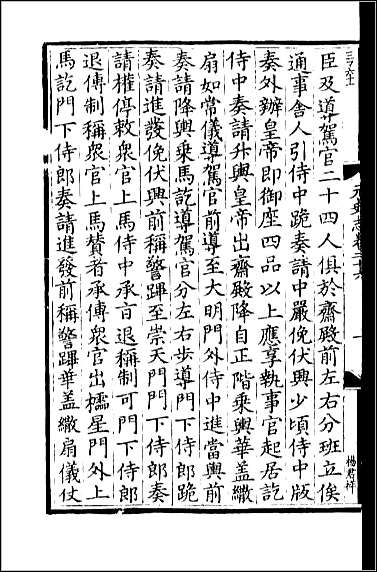 元史志卷二十六
一
臣及導駕官二十四人俱於齋殿前左右分班立俟
通事舍人引侍中跪奏請中嚴俛伏興少頃侍中版
奏外辦皇帝即御座四品以上應享執事官起居訖
侍中奏請升輿皇帝出齋殿降自正階乘輿華盖繖
扇如常儀導駕官前導至大明門外侍中進當輿前
奏請降輿乘馬訖導駕官分左右步導門下侍郎跪
奏請進發俛伏興前稱警蹕至崇天門門下侍郎奏
請權停敕衆官上馬侍中承旨退稱制可門下侍郎
退傳制稱衆官上馬賛者承傳衆官出櫺星門外上
馬訖門下侍郎奏請進發前稱警蹕華盖繖扇儀仗